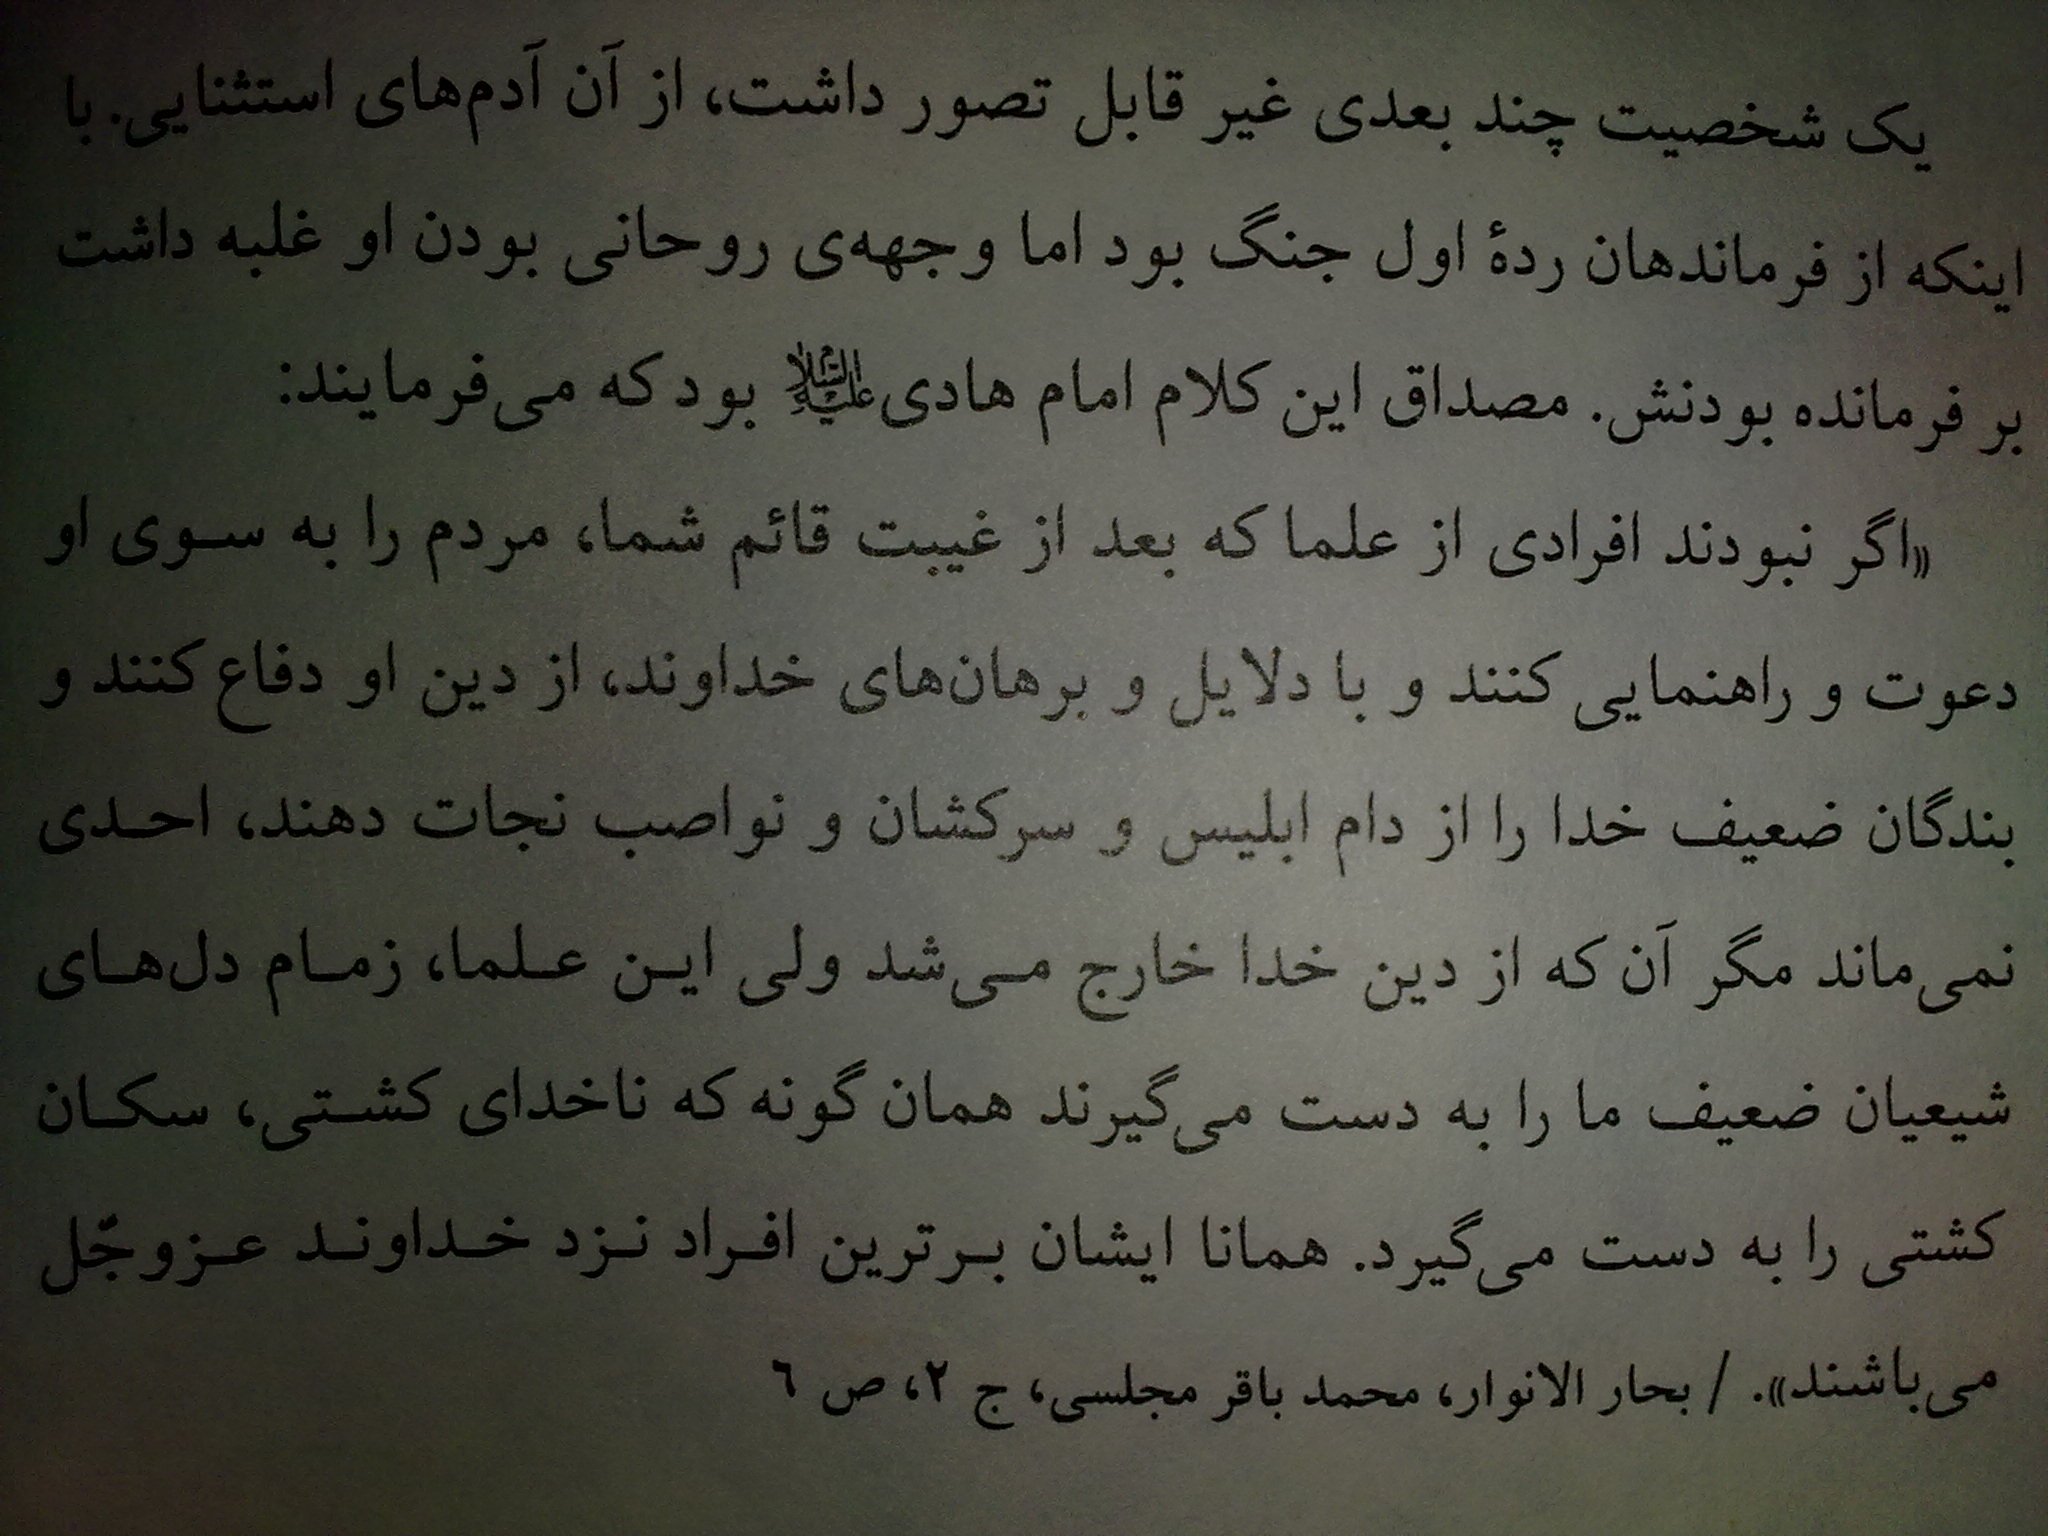 یک شخصیت چند بعدی غیر قابل تصور داشت، از آن آدم‌های استثنایی. با
اینکه از فرماندهان ردهٔ اول جنگ بود اما وجهه‌ی روحانی بودن او غلبه داشت
بر فرمانده بودنش. مصداق این کلام امام هادی علیه‌السلام بود که می‌فرمایند:
«اگر نبودند افرادی از علما که بعد از غیبت قائم شما، مردم را به سوی او
دعوت و راهنمایی کنند و با دلایل و برهان‌های خداوند، از دین او دفاع کنند و
بندگان ضعیف خدا را از دام ابلیس و سرکشان و نواصب نجات دهند، احدی
نمی‌ماند مگر آن که از دین خدا خارج می‌شد ولی این علما، زمام دل‌های
شیعیان ضعیف ما را به دست می‌گیرند همان گونه که ناخدای کشتی، سکان
کشتی را به دست می‌گیرد. همانا ایشان برترین افراد نزد خداوند عزوجّل
می‌باشند». / بحار الانوار، محمد باقر مجلسی، ج ۲، ص ٦